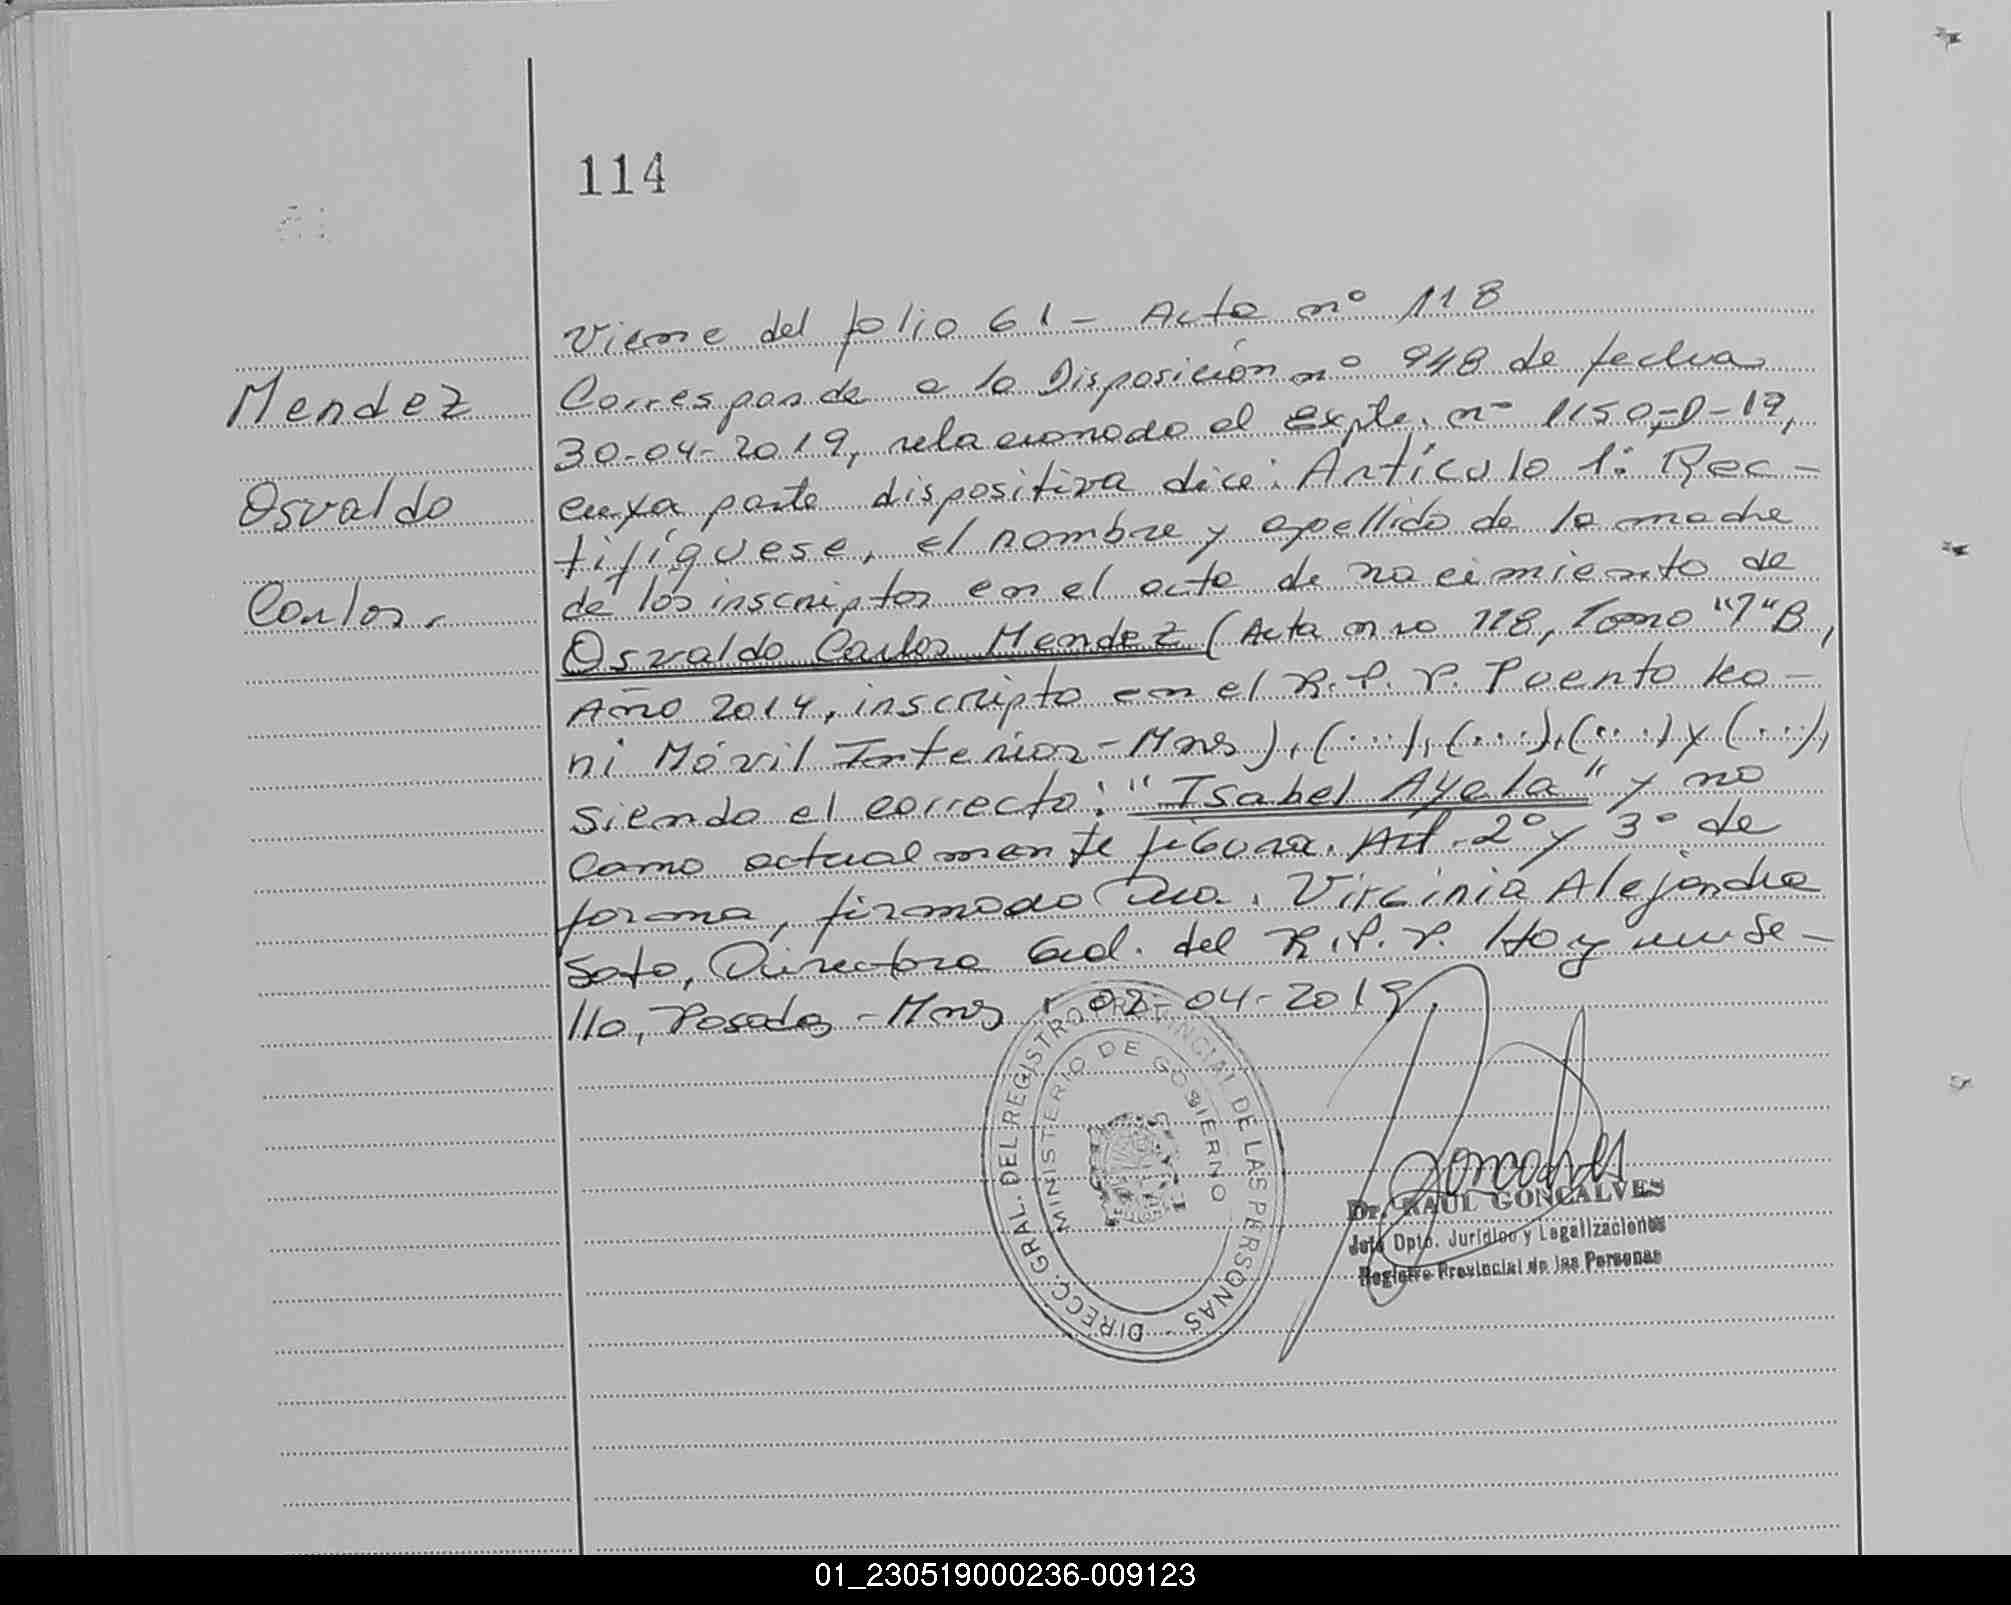 114
Viene del folio 61 - Acta nº 118
Mendez
Corresponde a la Disposición nº 948 de fecha
30-04-2019, relacionado al expte. nº 1150-D-19,
Osvaldo
cuya parte dispositiva dice: Artículo 1: Rec-
tifíquese, el nombre y apellido de la madre
Carlos.
de los inscriptos en el acta de nacimiento de
Osvaldo Carlos Mendez (Acta nro 118, Tomo "7" B,
Año 2014, inscripto en el R.P.P. Puento Ko-
ni Móvil Interior-Mnes), (...), (...), (...) y (...),
siendo el correcto: "Isabel Ayala" y no
como actualmente figura. Art. 2º y 3º de
forma, firmado Dra. Virginia Alejandra
Soto, Directora Gral. del R.P.P. Hoy mi se-
llo, Posadas - Mnes, 02-04-2019.
DIRECC. GRAL. DEL REGISTRO PROVINCIAL DE LAS PERSONAS
MINISTERIO DE GOBIERNO
Goncalves
Dr. RAUL GONCALVES
Jefe Dpto. Jurídico y Legalizaciones
Registro Provincial de las Personas
01_230519000236-009123